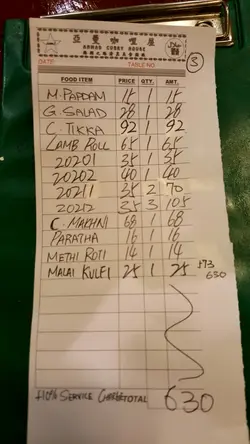 亞曼咖喱屋
AHMAN CURRY HOUSE
DATE: TABLE NO.
5
FOOD ITEM PRICE QTY. AMT.
M. PAPDAM 15 1 15
G. SALAD 28 1 28
C. TIKKA 92 1 92
LAMB ROLL 65 1 65
20201 35 1 35
20202 40 1 40
20211 35 2 70
20212 35 3 105
C. MAKHNI 68 1 68
PARATHA 16 1 16
METHI ROTI 14 1 14
MALAI KULFI 25 1 25 573
630
+10% SERVICE CHARGE TOTAL 630